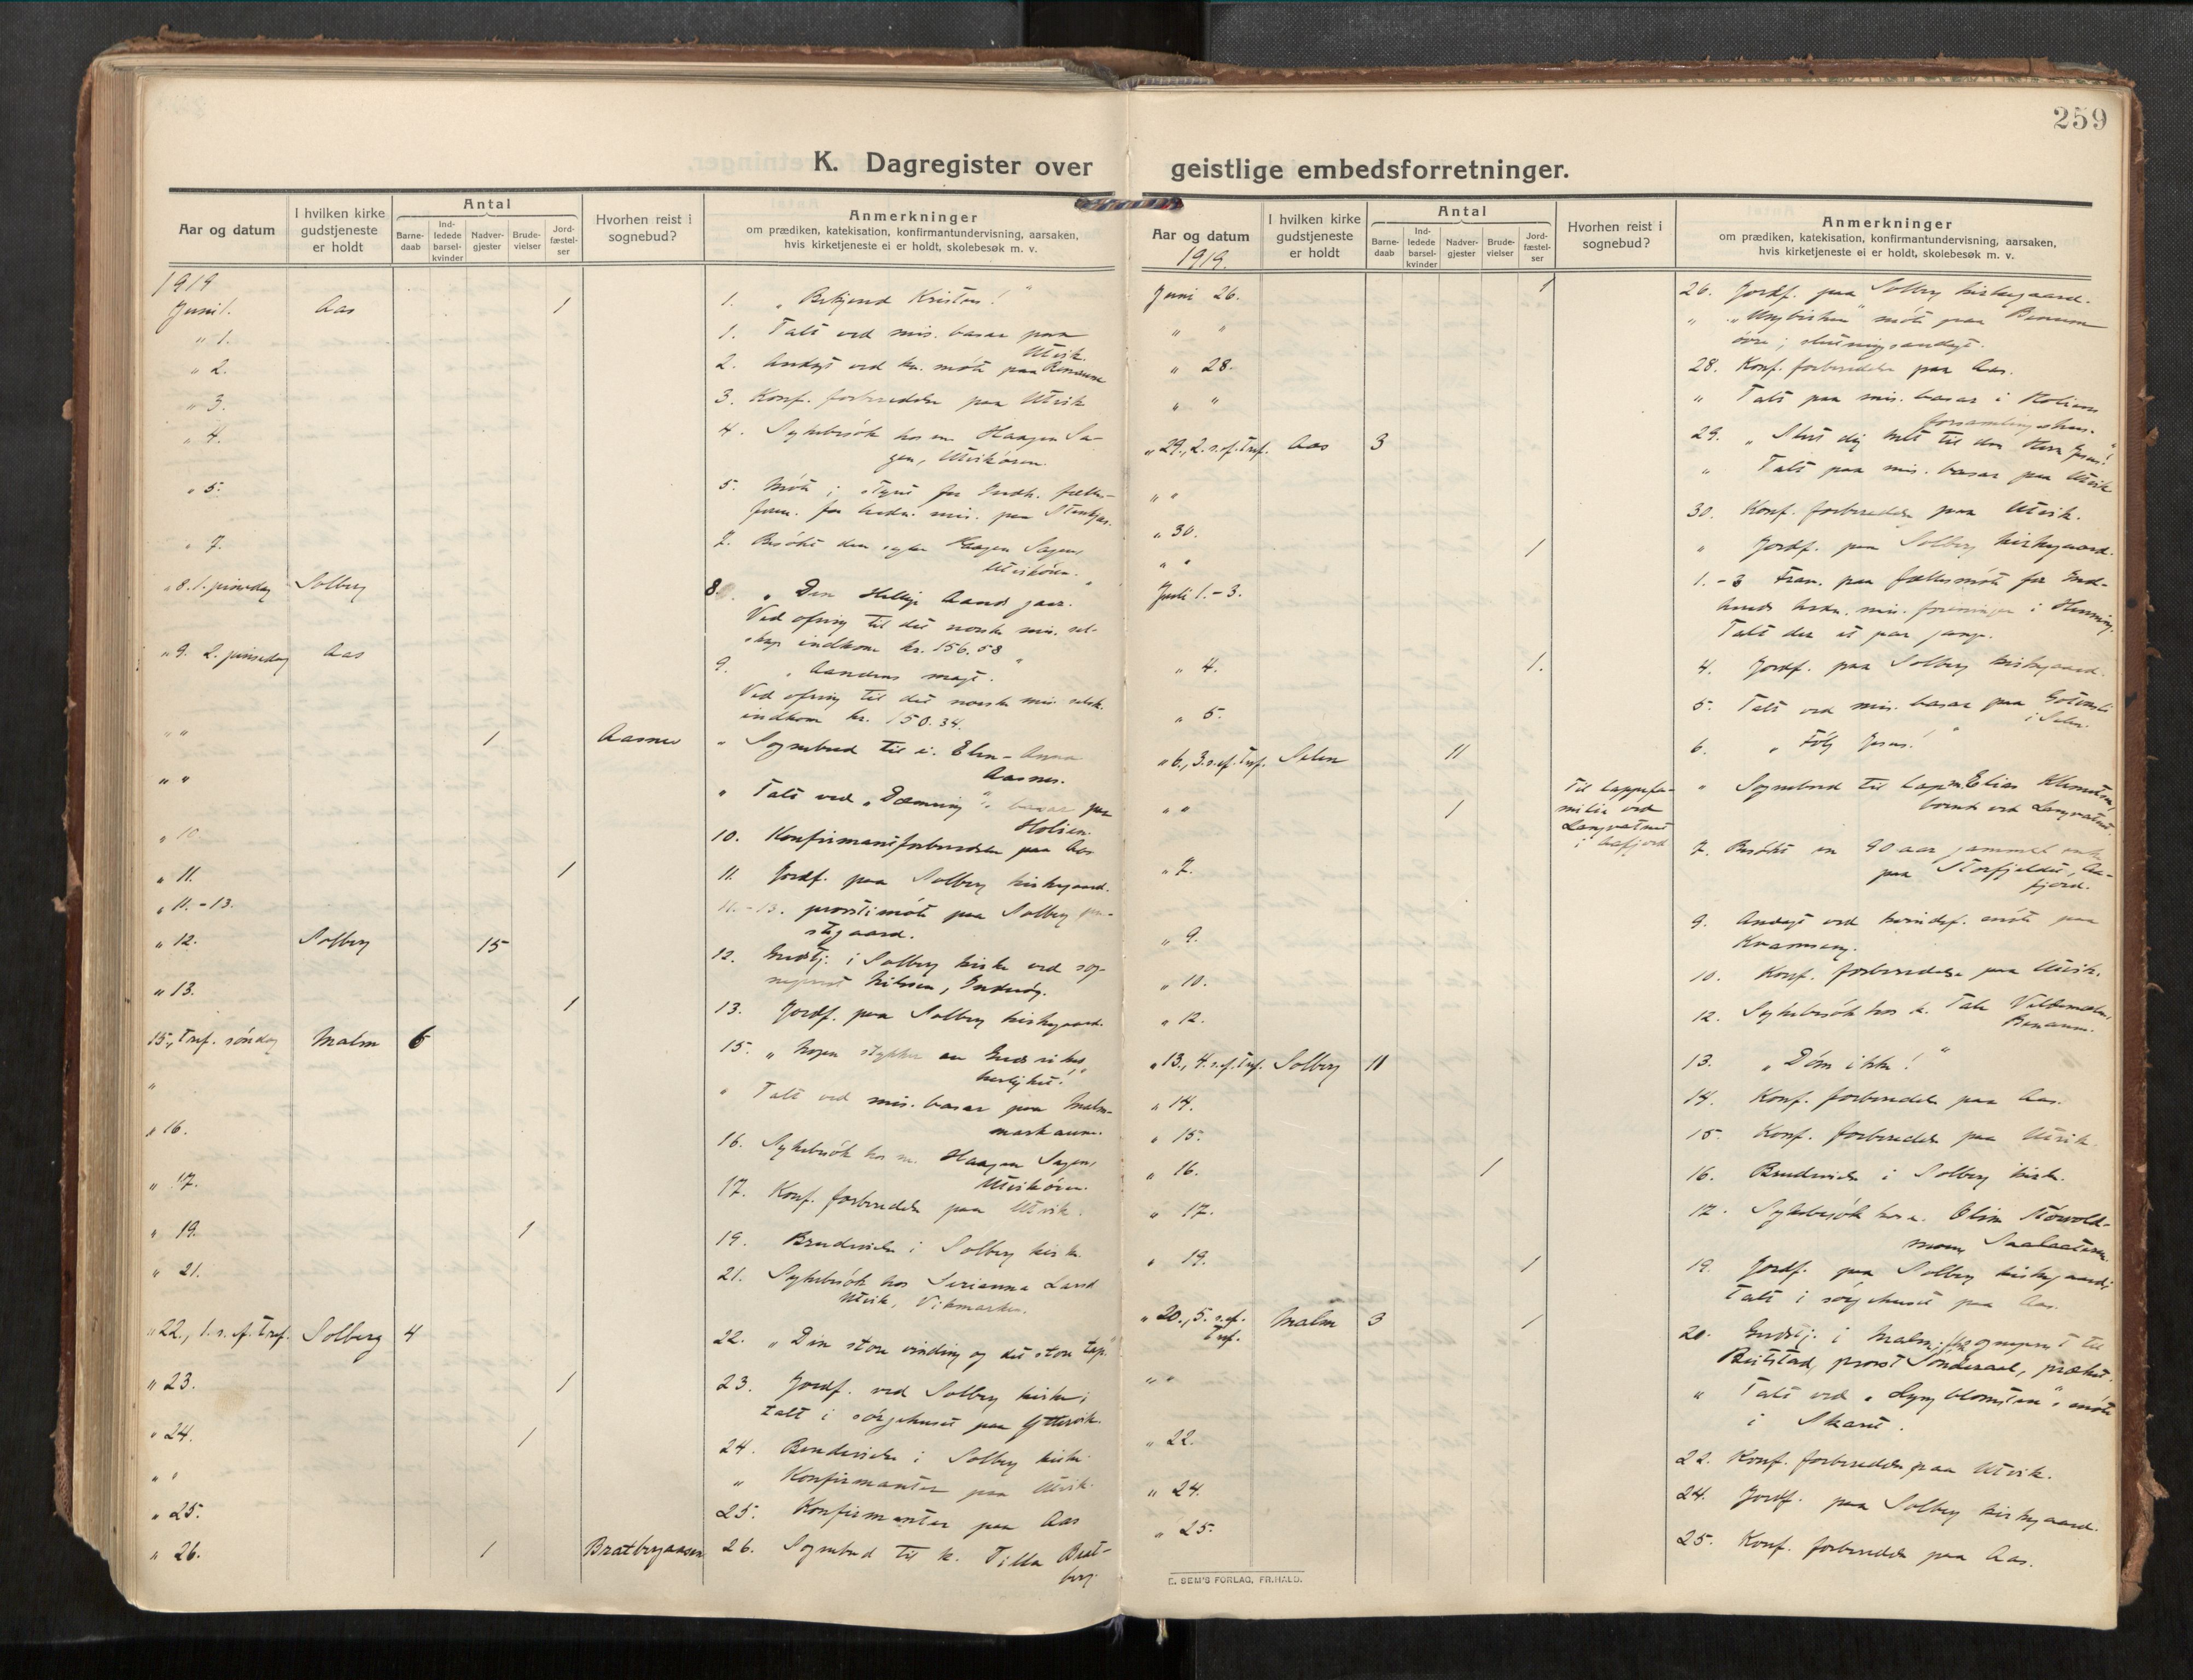 259
K. Dagregister over geistlige embedsforretninger.
Aar og datum
I hvilken kirke gudstjeneste er holdt
Antal
Barne-daab
Ind-ledede barsel-kvinder
Nadver-gjester
Brude-vielser
Jord-fæstel-ser
Hvorhen reist i sognebud?
Anmerkninger
om prædiken, katekisation, konfirmantundervisning, aarsaken,
hvis kirketjeneste ei er holdt, skolebesøk m. v.
1919
Juni 1. Aas 1 1. „Bekjend Kristus!"
„ 1. 1. Talt ved mis. basar paa
Utvik.
„ 2. 2. Andagt ved kv. møte paa
„ 3. 3. Konf. forberedelse paa Utvik
„ 4. 4. Sykebesøk hos em. Haagen Sa-
gen, Utvikøren.
„ 5. 5. Møte i styret for Indh. fælles-
foren. for hedn. mis. paa Stenkjær.
„ 7. 7. Besøkt den syke Haagen Sagen,
Utvikøren.
„ 8. 1. pinsedag Solberg 8. „Den Hellige Aands gave."
Ved ofring til det norske mis. sel-
skap indkom kr. 156.58
„ 9. 2. pinsedag Aas 9. „Aandens magt."
Ved ofring til det norske mis. selsk.
indkom kr. 150.34.
„ „ 1 Aasnes „ Sognebud til Elen Anna
Aasnes.
„ „ „ Talt ved „Dæmring"s basar paa
Holien.
„ 10 10. Konfirmantforberedelse paa Aas
„ 11. 1 11. Jordf. paa Solberg kirkegaard.
„ 11.-13. 11.-13. provstimøte paa Solberg pre-
stegaard.
„ 12. Solberg 15 12. Gudstj. i Solberg kirke ved sog-
neprest Nilssen, Inderøy.
„ 13. 1 13. Jordf. paa Solberg kirkegaard.
15., Tref. søndag Malm 6 15. „Nogen stykker av Guds rikes
herlighet!"
„ „ Talt ved mis. basar paa Malm-
markaune.
„ 16. 16. Sykebesøk hos Haagen Sagen,
Utvikøren.
„ 17. 17. Konf. forberedelse paa Utvik.
„ 19. 1 19. Brudevielse i Solberg kirke.
„ 21. 21. Sykebesøk hos Serianna
Utvik, Vikmarken.
„ 22., 1. s. ef. Tref. Solberg 4 22. „Den store vinding og det store tap."
„ 23. 1 23. Jordf. ved Solberg kirke;
talt i sørgehuset paa Yttervik.
„ 24. 1 24. Brudevielse i Solberg kirke.
„ „ „ Konfirmanter paa Utvik.
„ 25. 25. Konfirmanter paa Aas
„ 26. 1 Bratbergaasen 26. Sognebud til k. Tilla Brat-
berg.
Aar og datum
1919.
I hvilken kirke gudstjeneste er holdt
Antal
Barne-daab
Ind-ledede barsel-kvinder
Nadver-gjester
Brude-vielser
Jord-fæstel-ser
Hvorhen reist i sognebud?
Anmerkninger
om prædiken, katekisation, konfirmantundervisning, aarsaken,
hvis kirketjeneste ei er holdt, skolebesøk m. v.
Juni 26. 1 26. Jordf. paa Solberg kirkegaard.
„ „ „ møte paa Benum
øvre; slutningsandagt.
„ 28. 28. Konf. forberedelse paa Aas.
„ „ „ Talt paa mis. basar i Holiens
forsamlingshus.
„ 29., 2. s. ef. Tref. Aas 3 29. „Slut dig helt til den Herre Jesus!"
„ „ „ Talt paa mis. basar paa Utvik
„ 30. 30. Konf. forberedelse paa Utvik.
„ „ 1 „ Jordf. paa Solberg kirkegaard.
Juli 1.-3. 1.-3 Fran. paa fællesmøte for Ind-
herreds hedn. mis. foreninger i Henning.
Talt der et par gange.
„ 4. 1. 4. Jordf. paa Solberg kirkegaard.
„ 5. 5. Talt ved mis. basar paa
i Selen.
„ 6., 3. s. ef. Tref. Selen 11 6. „Følg Jesus!"
„ „ 1 Til lappefa-
milie ved
Langvatnet
i Aafjord „ Sognebud til lapm. Elias Klemetsen,
boende ved Langvatnet.
„ 7. 7. Besøkt en 90 aar gammel enke
paa Storfjeldet, Aa-
fjord.
„ 9. 9. Andagt ved kvindef. møte paa
Kvamseng.
„ 10. 10. Konf. forberedelse paa Utvik.
„ 12. 12. Sykebesøk hos k.
Benaun.
„ 13., 4. s. ef. Tref. Solberg 11 13. „Døm ikke!"
„ 14. 14. Konf. forberedelse paa Aas.
„ 15. 15. Konf. forberedelse paa Utvik.
„ 16. 1 16. Brudevielse i Solberg kirke.
„ 17. 17. Sykebesøk hos e. Elin

„ 19. 1 19. Jordf. paa Solberg kirkegaard;
talt i sørgehuset paa Aas.
„ 20., 5. s. ef. Tref. Malm 3 1 20. Gudstj. i Malm; fhv. sogneprest til
Beitstad, provst Sønderaal, prækete.
„ „ „ Talt ved „Lyngblomsten"s møte
i Skaret.
„ 22. 22. Konf. forberedelse paa Utvik.
„ 24. 24. Jordf. paa Solberg kirkegaard.
„ 25. 25. Konf. forberedelse paa Aas.
E. SEM'S FORLAG, FR.HALD.